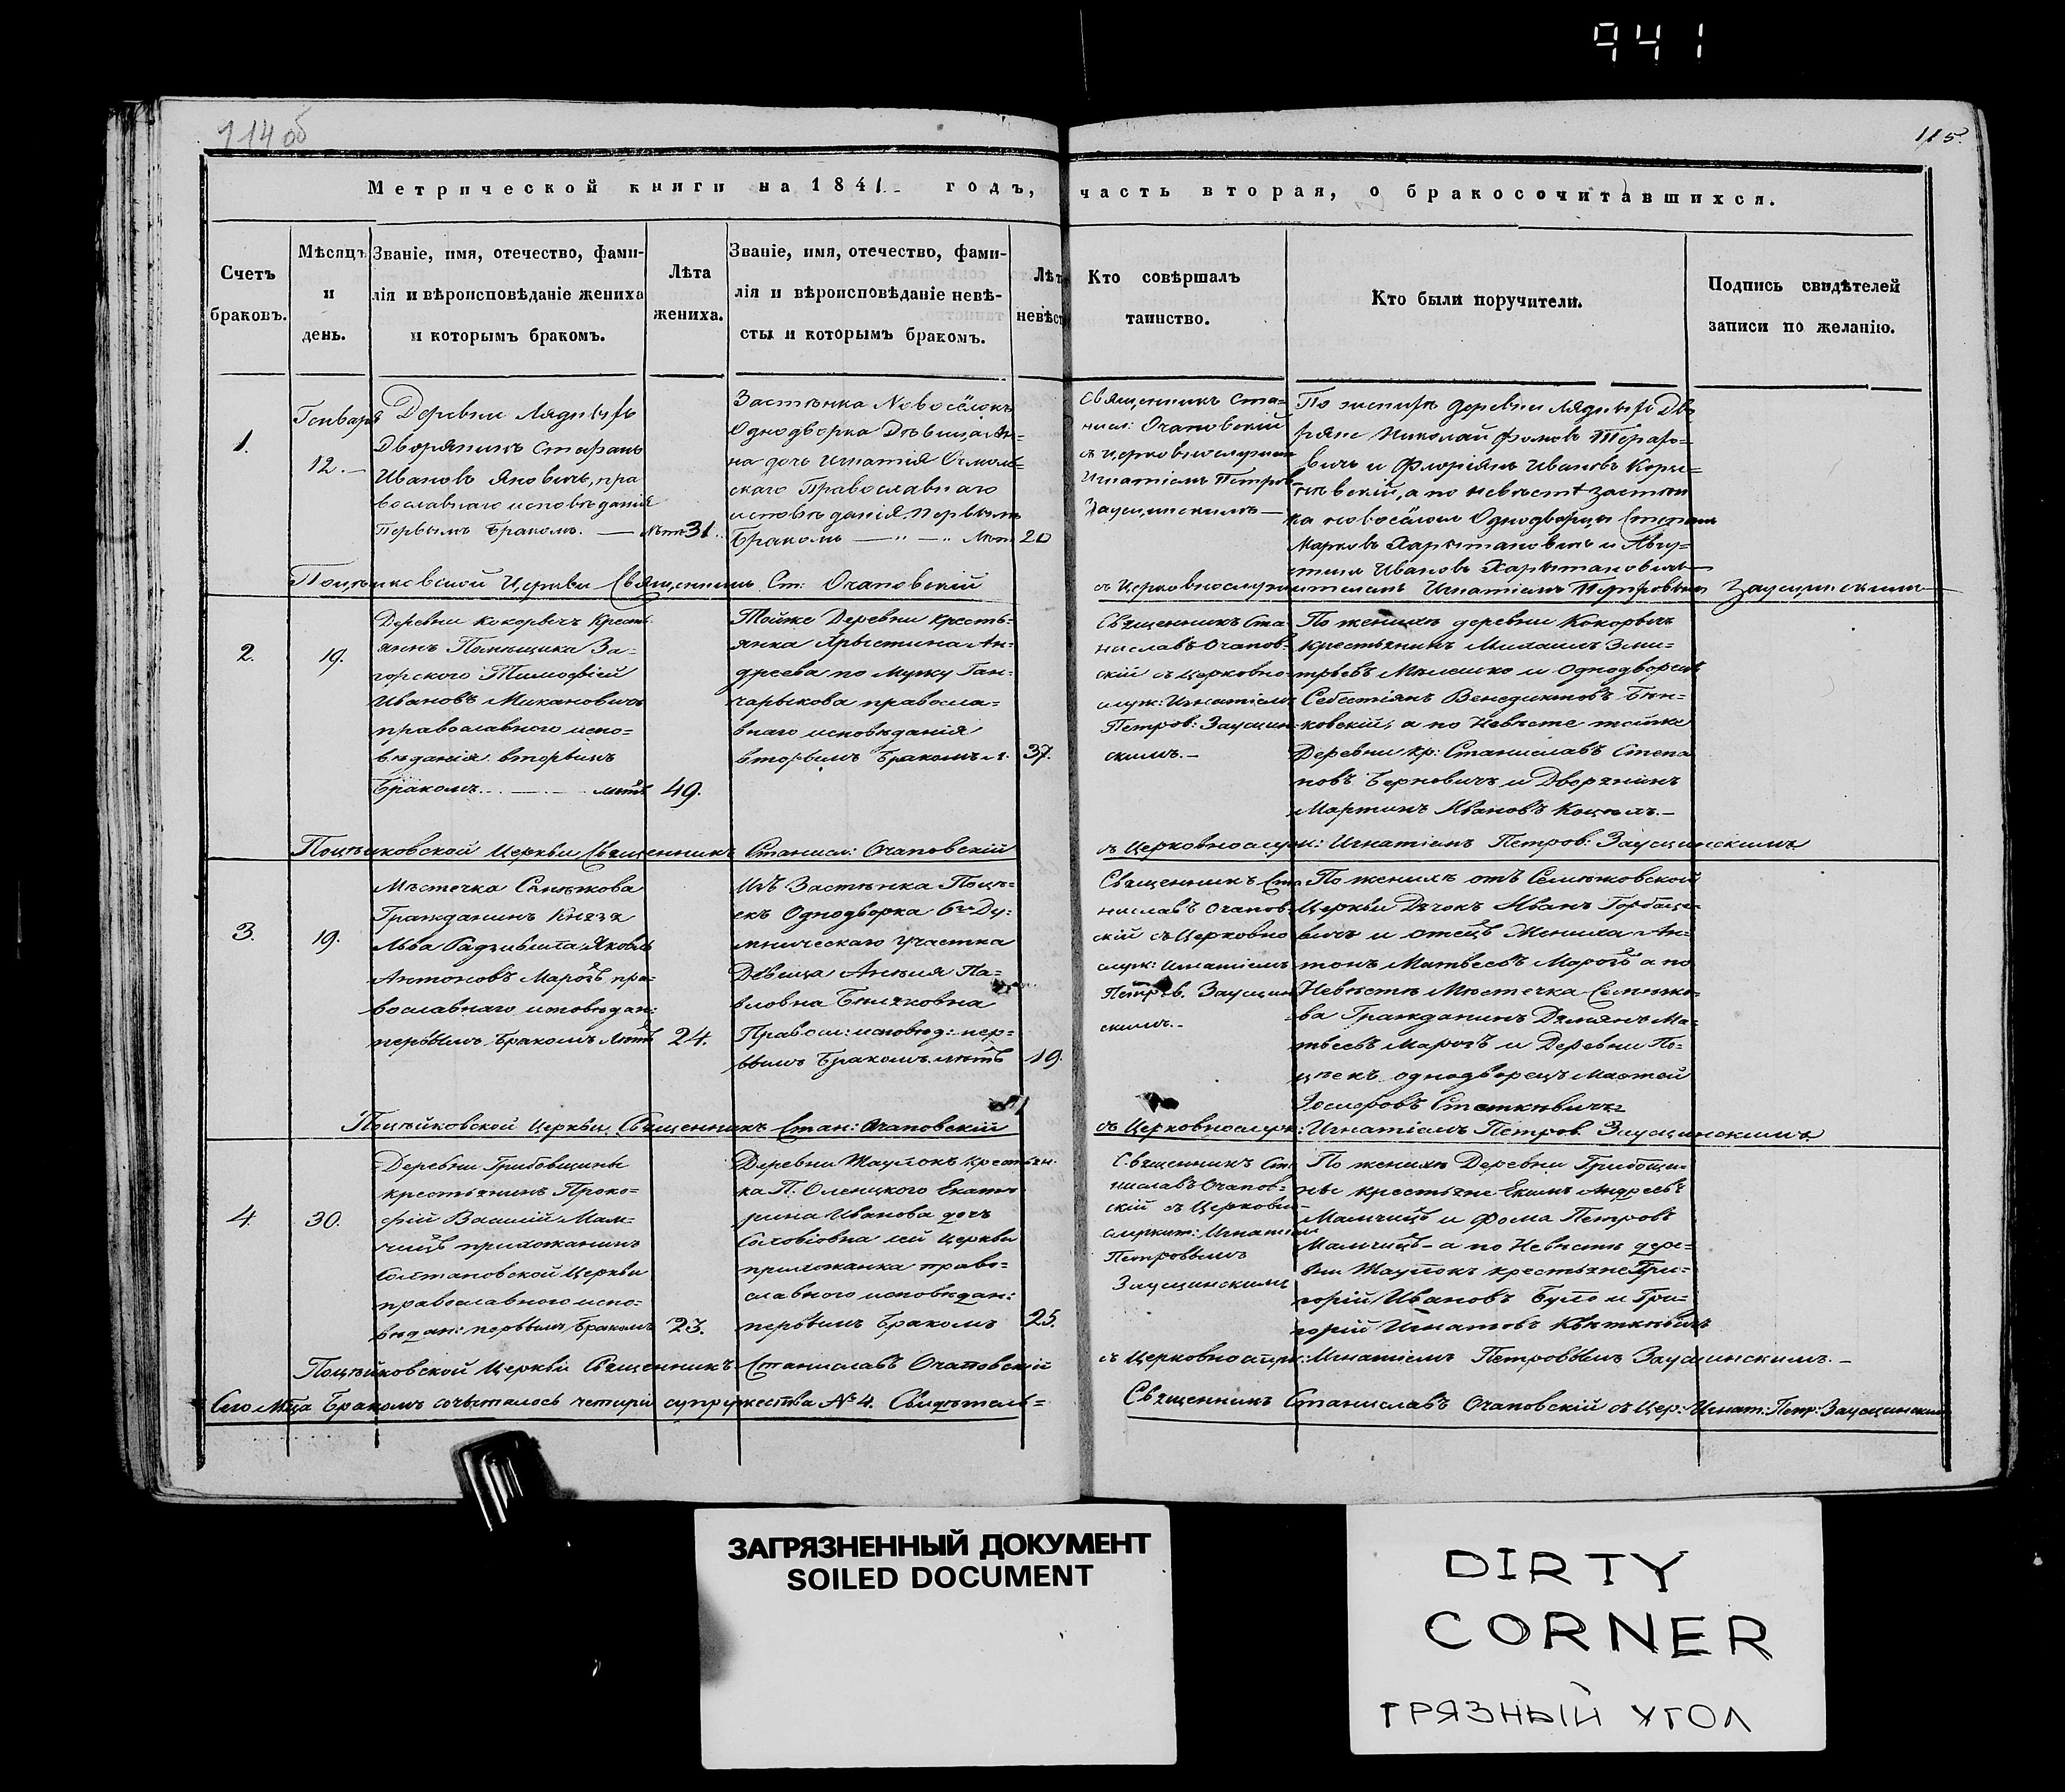 941
114 об
115.
Метрической книги на 1841 годъ, часть вторая, о бракосочитавшихся.
Счетъ
браковъ.
Мѣсяцъ
и
день.
Званіе, имя, отечество, фами-
лія и вѣроисповѣданіе жениха
и которымъ бракомъ.
Лѣта
жениха.
Званіе, имя, отечество, фами-
лія и вѣроисповѣданіе невѣ-
сты и которымъ бракомъ.
Лѣт
невѣст
Кто совѣршалъ
таинство.
Кто были поручители.
Подпись свидѣтелей
записи по желанію.
1.
Генваря
12.
Деревни
Дворянинъ Стефанъ
Ивановъ Яновичъ, пра
вославнаго исповѣданія
Первымъ бракомъ. — лѣтъ 31.
Застѣнка Новосёлокъ
Однодворка Дѣвица Ан-
на дочь Игнатія
скаго Православнаго
исповѣданія Первымъ
бракомъ — лѣтъ 20
Священникъ Ста-
нисл: Очаповскій
съ церковнослужит
Игнатіемъ Петров
Заусцинскимъ —
По женихѣ деревни Дво
ряне Николай
вичъ и Флоріянъ Ивановъ
а по невѣсте застѣн
ка Новосёлокъ Однодворцы Степанъ
Марковъ Харытановичъ и Авгу-
стинъ Ивановъ Харытановичъ
Поцѣйковской Церкви Священникъ Ст: Очаповскій
съ Церковнослужителемъ Игнатіемъ Петровымъ Заусцинскимъ
2.
19.
Деревни Кокорычъ Кресть
янинъ Помѣщика За-
горского Тимофѣй
Ивановъ Микановичъ
православного испо-
вѣданія вторымъ
бракомъ лѣтъ 49.
Тойже Деревни кресть-
янка Хрыстина Ан-
дреева по мужу Ган-
чарыкова правосла-
внаго исповѣданія
вторымъ бракомъ л. 37.
Священникъ Ста
ниславъ Очапов-
скій съ церковно
служ: Игнатіем
Петров: Заусцин
скимъ. —
По женихѣ деревни Кокорычъ
крестьянинъ Михаилъ Дми-
тріевъ и Однодворецъ
Себестіянъ Венедиктовъ Бын-
ковскій, а по Невѣсте тойже
Деревни кр: Станиславъ Степа
новъ Берновичъ и Дворянинъ
Мартинъ Ивановъ
Поцѣйковской Церкви Священникъ Станисл: Очаповскій
съ Церковнослуж: Игнатіемъ Петров: Заусцинскимъ
3.
19.
Мѣстечка Сѣнежкова
Гражданинъ Князя
Льва Радзивила Яковъ
Антоновъ Марозъ пра-
вославнаго исповѣдан:
первымъ бракомъ лѣтъ 24.
Изъ Застѣнка Поцѣ-
екъ Однодворка 6го Ду-
мническаго Участка
Дѣвица Анеля Па-
вловна
Правосл: исповѣд: пер-
вымъ бракомъ лѣтъ 19.
Священникъ Ста
ниславъ Очапов
скій съ Церковно
служ: Игнатіемъ
Петров. Заусцин
скимъ. —
По женихѣ отъ
Церкви Дячокъ Иванъ Горбаце-
вичъ и отецъ Жениха Ан-
тонъ Матвеевъ Марозъ а по
Невѣстѣ Мѣстечка
ва Гражданинъ Демянъ Ма-
твеевъ Марозъ и Деревни По-
цѣекъ однодворецъ Матѳей
Статкѣвичъ
Поцѣйковской Церкви Священникъ Стан: Очаповскій
съ Церковнослуж: Игнатіемъ Петров. Заусцинскимъ
4.
30.
Деревни Грибовщины
крестьянинъ Проко-
фій Василій Мам-
чицъ прихожанинъ
Солтановской Церкви
православного испо-
вѣдан: первымъ бракомъ 23.
Деревни Жаулокъ крестьян-
ка П. Оленцкого Екате
рина Иванова дочь
сей Церкви
прихожанка право-
славного исповѣдан:
первымъ бракомъ 25.
Священникъ Ста
ниславъ Очапов-
скій съ Церковно-
служит: Игнатіем
Петровымъ
Заусцинскимъ
По женихѣ Деревни Грибовщи-
ны крестьяне Екимъ Андреевъ
Мамчицъ и Фома Петровъ
Мамчицъ — а по Невѣсте дере-
вни Жаулокъ крестьяне Гри-
горій Ивановъ и Гри-
горій Игнатовъ Квяткѣвичъ
Поцѣйковской Церкви Священникъ Станиславъ Очаповскій
съ Церковнослуж: Игнатіемъ Петровымъ Заусцинскимъ. —
Сего М-ца бракомъ сочеталось четыри супружества № 4. Свидѣтель-
Священникъ Станиславъ Очаповскій съ Цер: Игнат: Петр: Заусцинским
ЗАГРЯЗНЕННЫЙ ДОКУМЕНТ
SOILED DOCUMENT
DIRTY
CORNER
ГРЯЗНЫЙ УГОЛ